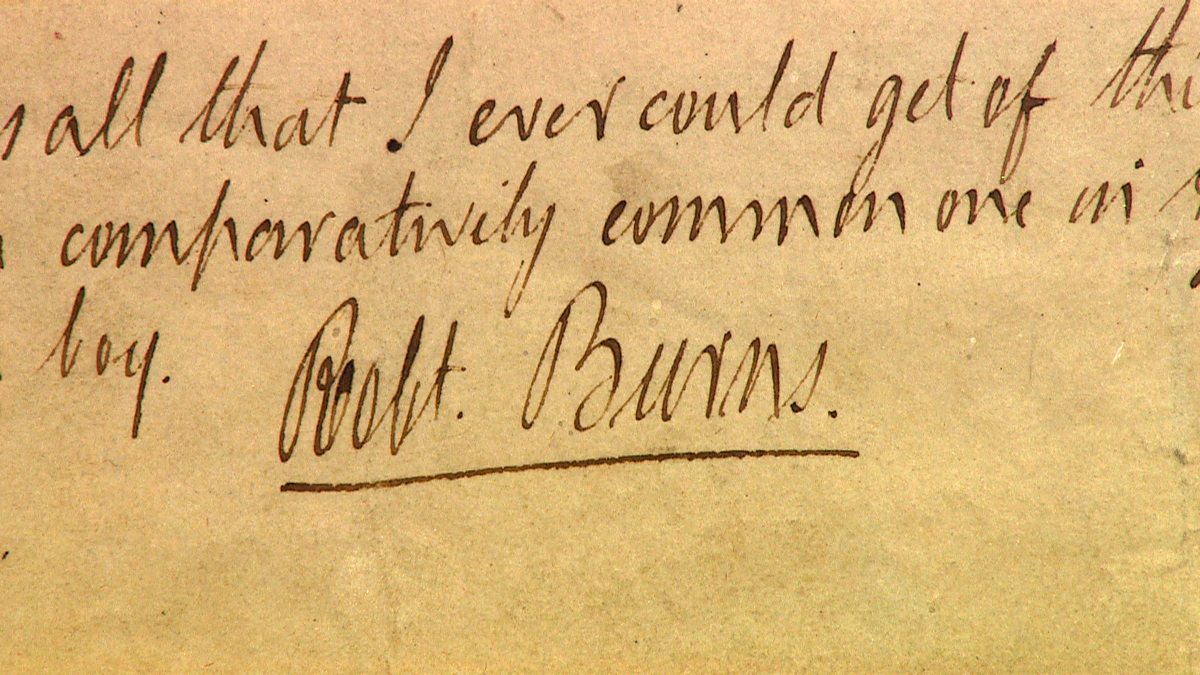 all that I ever could get of
comparatively common one in
boy. Robt. Burns.